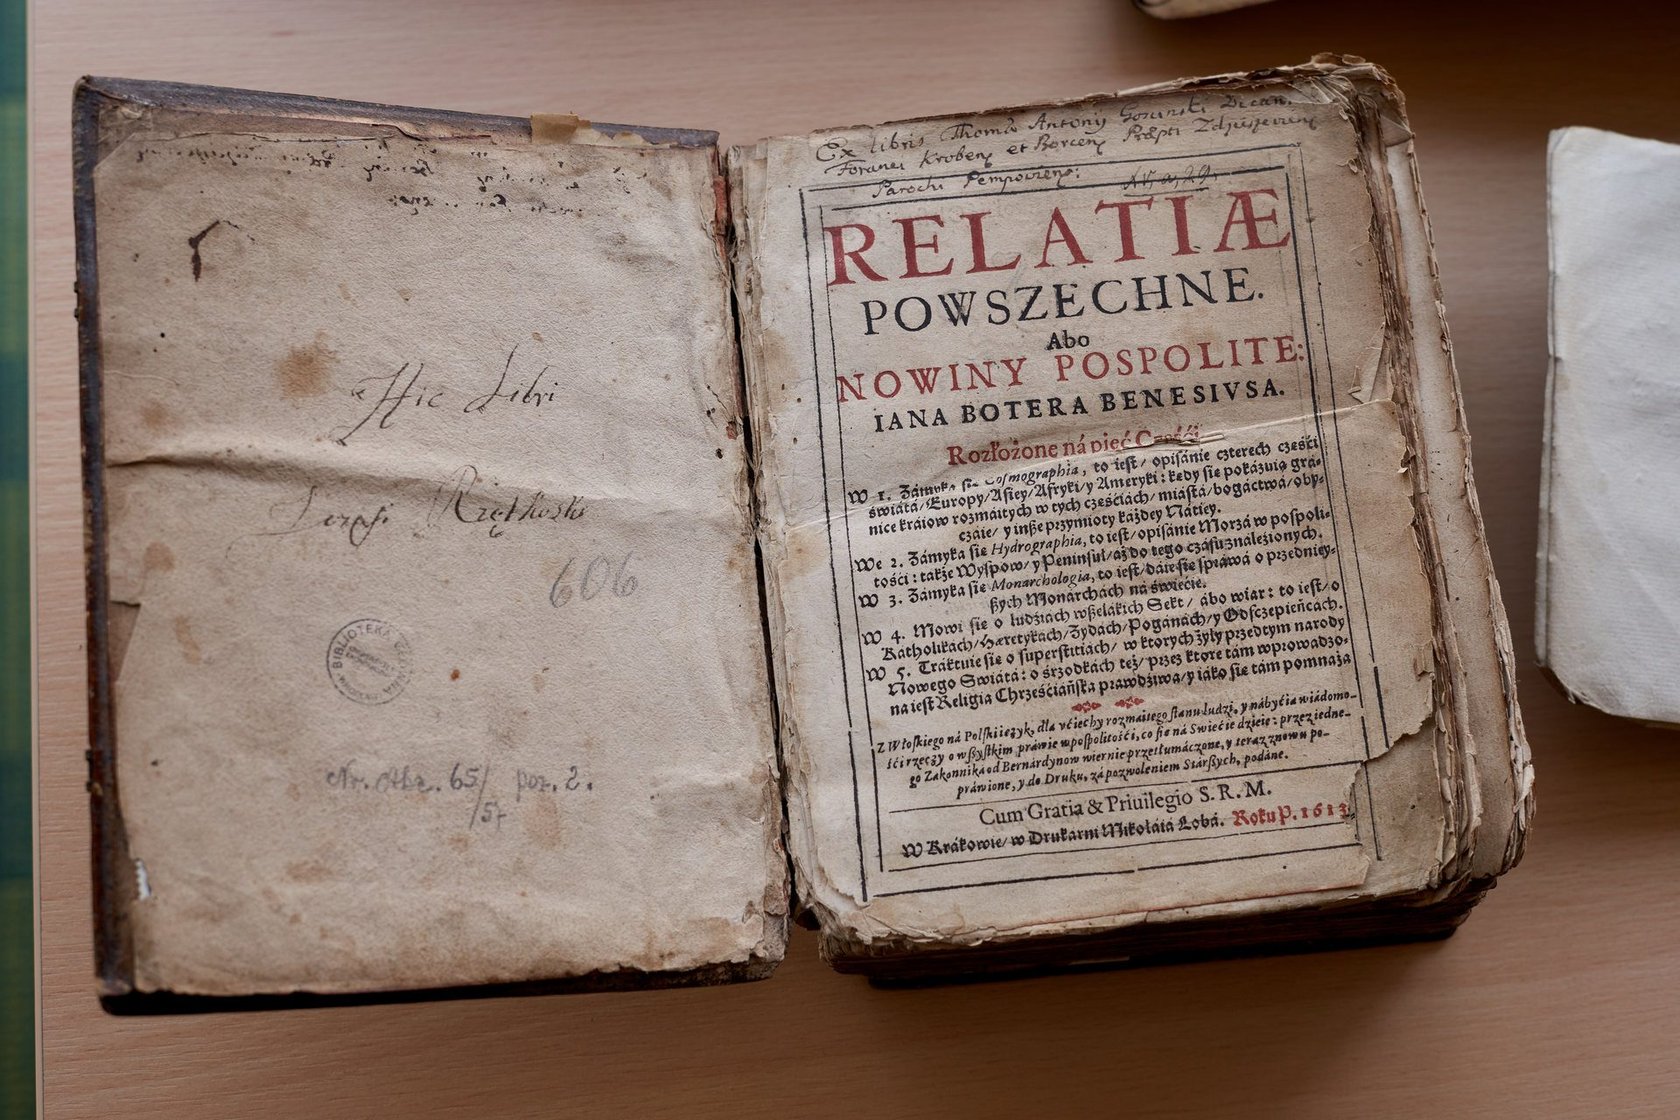 Hic Libri
606
BIBLIOTEKA
Nr. Akc. 65/57 poz. 2.
Ex libris Thomæ Antony Gosinski Decan.
Foranei Kroben et Borcen
Parochi
RELATIÆ
POWSZECHNE.
Abo
NOWINY POSPOLITE:
IANA BOTERA BENESIVSA.
Rozłożone ná pięć Części
W 1. Zámyka się Cosmographia, to iest/ opisánie czterech części
świátá/Europy/Asiey/Afryki/y Ameryki: kędy się pokázuią grá-
nice kráiow rozmáitych w tych częściách/ miástá/bogáctwá/oby-
czáie/ y inße przymioty káżdey Nátiey.
We 2. Zámyka się Hydrographia, to iest/opisánie Morzá w pospoli-
tości: tákże Wyspow/y Peninsul/áż do tego czásu ználeźionych.
W 3. Zámyka się Monarchologia, to iest/dáie się spráwá o przedniey-
ßych Monárchách ná świećie.
W 4. Mowi się o ludźiách wßelákich Sekt/ ábo wiar: to iest/o
Kátholikách/Hæretykách/Żydách/Pogánách/y Odsczepieńcách.
W 5. Tráktuie się o superstitiách/ w ktorych żyły przedtym narody
Nowego Świátá: o śrzodkách też/przez ktore tám wprowádzo-
na iest Religia Chrześćiáńska prawdźiwa/y iáko się tám pomnaża
Z Włoskiego ná Polski ięzyk, dla vćiechy rozmáitego stanu ludźi, y nábyćia wiádomo-
śći rzeczy o wßystkim práwie w pospolitośći, co się ná Świećie dźieie: przez iedne-
go Zakonniká od Bernárdynow wiernie przetłumáczone, y teraz znowu po-
práwione, y do Druku, zá pozwoleniem Stárßych, podáne.
Cum Gratia & Priuilegio S. R. M.
W Krákowie/ w Drukárni Mikołáiá Lobá. Roku P. 1613.